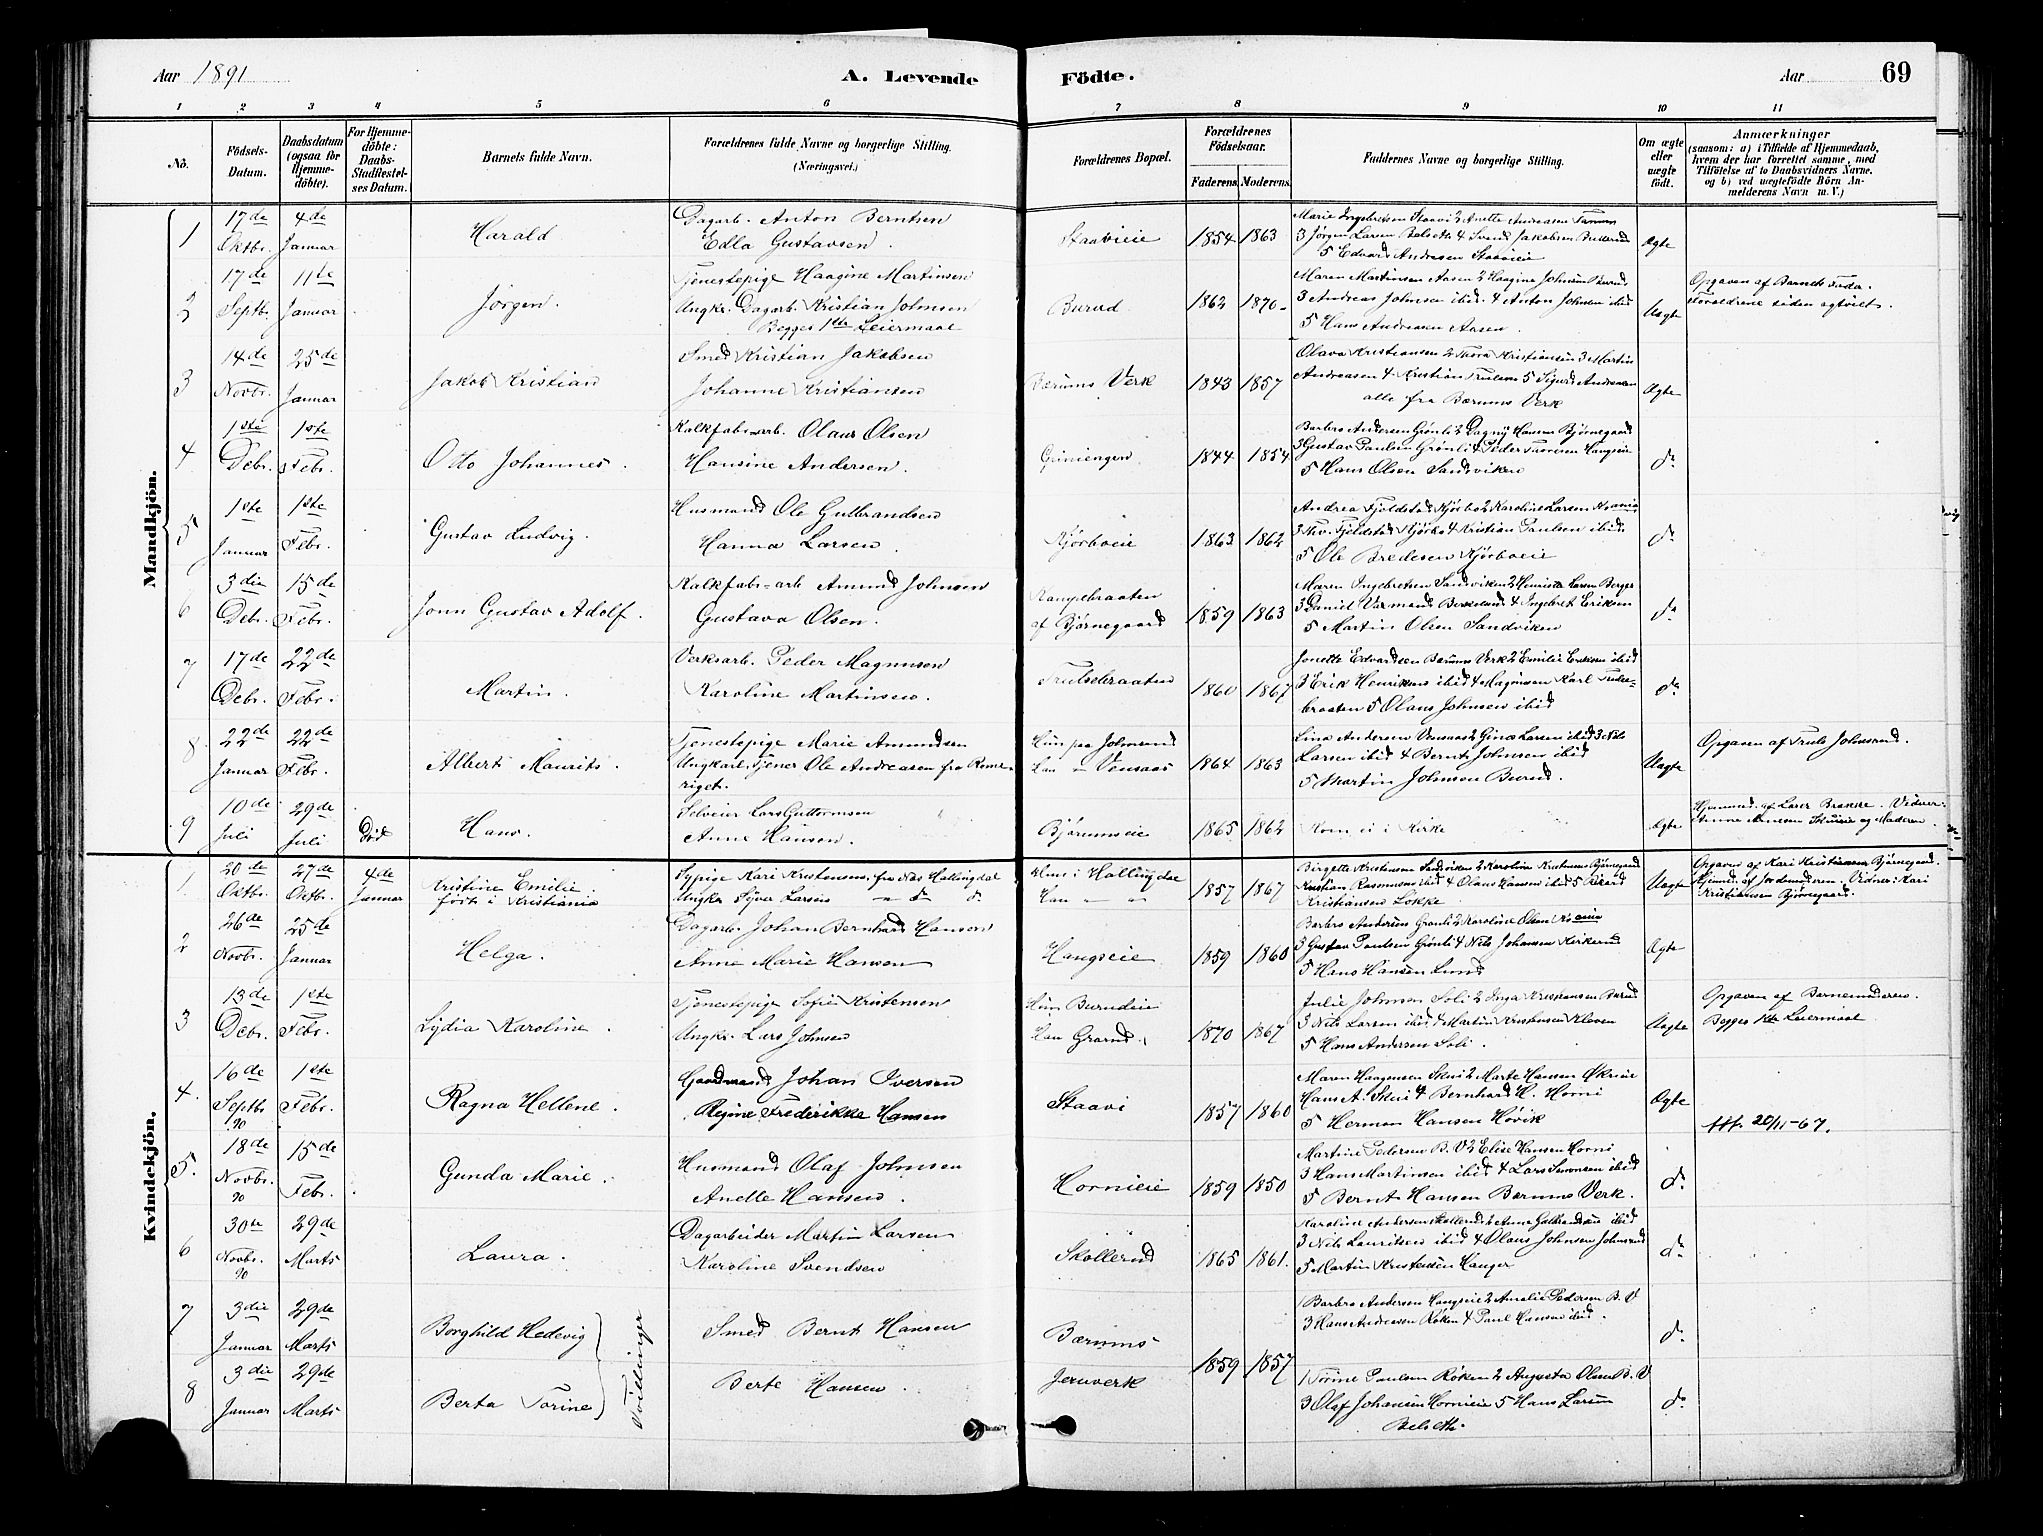 Aar 1891 A. Levende Födte. Aar 69
1 2 3 4 5 6 7 8 9 10 11
No. Födsels-Datum. Daabsdatum (ogsaa for Hjemme-döbte). For Hjemme-döbte: Daabs-Stadfæstel-ses Datum. Barnets fulde Navn. Forældrenes fulde Navne og borgerlige Stilling. (Næringsvei.) Forældrenes Bopæl. Forældrenes Födselsaar. Faderens. Moderens. Faddernes Navne og borgerlige Stilling. Om ægte eller uægte födt. Anmærkninger (saasom: a) i Tilfælde af Hjemmedaab, hvem der har forrettet samme, med Tilföielse af to Daabsvidners Navne, og b) ved uægtefödte Börn An-melderens Navn m. V.)
Mandkjön.
1 17de Oktbr. 4de Januar Harald Dagarb. Anton Berntsen
Edla Gustavsen. Staavieie 1854 1863 Marie Ingebretsen Staavi 2 Anette Andreasen Tanum
3 Jørgen Larsen Belseth 4 Svend Jakobsen Burud
5 Edvard Andreasen Staavieie Ægte
2 17de Septbr. 11te Januar Jørgen. Tjenestepige Haagine Martinsen
Ungkr. Dagarb. Kristian Johnsen
Begges 1ste Leiermaal Burud 1862 1870 Maren Martinsen Aasen 2 Haagine Johnsen Burud
3 Andreas Johnsen ibid. 4 Anton Johnsen ibid
5 Hans Andreasen Aasen. Uægte Opgaven af Barnets Fader.
Forældrene siden ægteviet.
3 14de Novbr. 25de Januar Jakob Kristian Smed Kristian Jakobsen
Johanne Kristiansen Bærums Verk 1843 1857 Olava Kristiansen 2 Thora Kristiansen 3 Martin
Andreasen 4 Kristian Trulsen 5 Sigurd Andreasen
alle fra Bærums Verk Ægte
4 1ste Debr. 1ste Febr. Otto Johannes. Kalkfabr=arb. Olaus Olsen
Hansine Andersen. Griniengen 1844 1854 Barbro Andersen Grønli 2 Dagny Hansen Bjørnegaard
3 Gustav Paulsen Grønli 4 Peder Hangseie
5 Hans Olsen Sandviken do
5 1ste Januar 1ste Febr. Gustav Ludvig. Husmand Ole Gulbrandsen
Hanna Larsen. Kjørboeie 1863 1862 Andrea Fjeldstad Kjørbo 2 Karoline Larsen
3 Thv. Fjeldstad Kjørbo 4 Kristian Paulsen ibid
5 Ole Bredesen Kjørboeie do
6 3die Debr. 15de Febr. Jonn Gustav Adolf. Kalkfabr=arb Amund Johnsen
Gustava Olsen. af Bjørnegaard 1859 1863 Maren Ingebretsen Sandviken 2 Henriette Larsen Berger
3 Daniel Varmand Berkeland 4 Ingebret Eriksen
5 Martin Olsen Sandviken do
7 17de Debr. 22de Febr. Martin. Verksarb. Peder Magnusen
Karoline Martinsen. Trulsebraaten 1860 1867 Jonette Edvardsen Bærums Verk 2 Emilie Eriksen ibid
3 Erik Henriksen ibid 4 Magnusen Karl Trulse-
braaten 5 Olaus Johnsen ibid do
8 22de Januar 22de Febr. Albert Maurits. Tjenestepige Marie Amundsen
Ungkarl, tjener Ole Andreasen fra Rome-
riget. Hun paa Johnsrud
Han - Vensaas 1864 1863 Lina Andersen Vensaas 2 Gina Larsen ibid 3 Nils
Larsen ibid 4 Bernt Johnsen ibid
5 Martin Johnsen Burud. Uægte Opgaven af Truls Johnsrud.
9 10de Juli 29de Juli Död Hans. Selveier Lars Guttormsen
Anne Hansen. Bjørumseie 1865 1862 Kom ei i Kirke Ægte Hjemmed. af Laser Brække. Vidner:
Anna og Moderen.
Kvindekjön.
1 20de Oktbr. 27de Oktbr. 4de Januar Kristine Emilie.
født i Kristiania Sypige Kari Kristensen fra Næs Hallingdal
Ungkr Syver Larsen - d - do Hun i Hallingdal
Han - - 1857 1867 Birgette Kristensen Sandviken 2 Karoline Kristensen Bjørnegaard
Kristian Rasmusen ibid 4 Olaus Hansen ibid 5 Rikard
Kristiansen Løkke Uægte Opgaven af Kari Kristiansen Bjørnegaard.
Hjemmd. af Jordmoderen. Vidner: Kari
Kristiansen Bjørnegaard.
2 26de Novbr. 25de Januar Helga. Dagarb. Johan Bernhard Hansen
Anne Marie Hansen Hangseie 1859 1860 Barbro Andersen Grønli 2 Karoline Olsen
3 Gustav Paulsen Grønli 4 Nils Johansen Kirkerud
5 Hans Hansen Lund Ægte
3 13de Debr. 1ste Febr. Lydia Karoline. Tjenestepige Sofie Kristensen
Ungkr. Lars Johnsen Hun Burudeie
Han Grorud 1870 1867 Julie Johnsen Soli 2 Inga Kristensen Burud
3 Nils Larsen ibid. 4 Martin Kristensen Kleven
5 Hans Andersen Soli. Uægte Opgaven af Barnemoderen.
Begges 1ste Leiermaal
4. 16de Septbr 90 1ste Febr. Ragna Hellene. Gaardmand Johan Iversen
Regine Frederikke Hansen Staavi 1857 1860 Maren Haagensen Skui 2 Marte Hansen Økrieie
Hans A. Skui 4 Bernhard H. Horni
5 Herman Hansen Høvik Ægte Att. 20/11-67.
5. 18de Novbr. 90 15de Febr. Gunda Marie. Husmand Olaf Johnsen
Anette Hansen. Hornieie 1859 1850 Martine Pedersen B. V 2 Elise Hansen Horni
3 Hans Martinsen ibid 4 Lars Simonsen ibid
5 Bernt Hansen Bærums Verk. do
6 30te Novbr. 90 29de Marts Laura. Dagarbeider Martin Larsen
Karoline Svendsen Skollerud 1865 1861. Karoline Andersen Skollerud 2 Anne Gulbrandsen ibid
3 Nils Lauritsen ibid 4 Olaus Johnsen Johnsrud
5 Martin Kristensen Hanger do
7 3die Januar 29de Marts Borghild Hedevig Tvillinger Smed Bernt Hansen Bærums 1859 1857 1 Barbro Andersen Hangseie 2 Amalie Pedersen B. V
3 Hans Andreasen Røken 4 Paul Hansen ibid. do
8 3die Januar 29de Marts Berta Torine Berte Hansen. Jernverk 1 Torine Paulsen Røken 2 Augusta Olsen B. V
3 Olaf Johansen Hornieie 5 Hans Larsen
Belseth. do